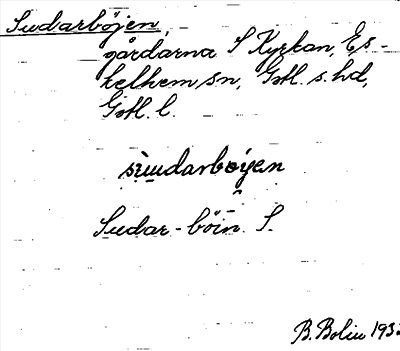 Sudarböjen,
gårdarna S Kyrkan, Es-
kelhem sn, Gotl. s. hd,
Gotl. l.
sùudarbǫ́yen
Sudar-böin. S.
B. Bolin 193